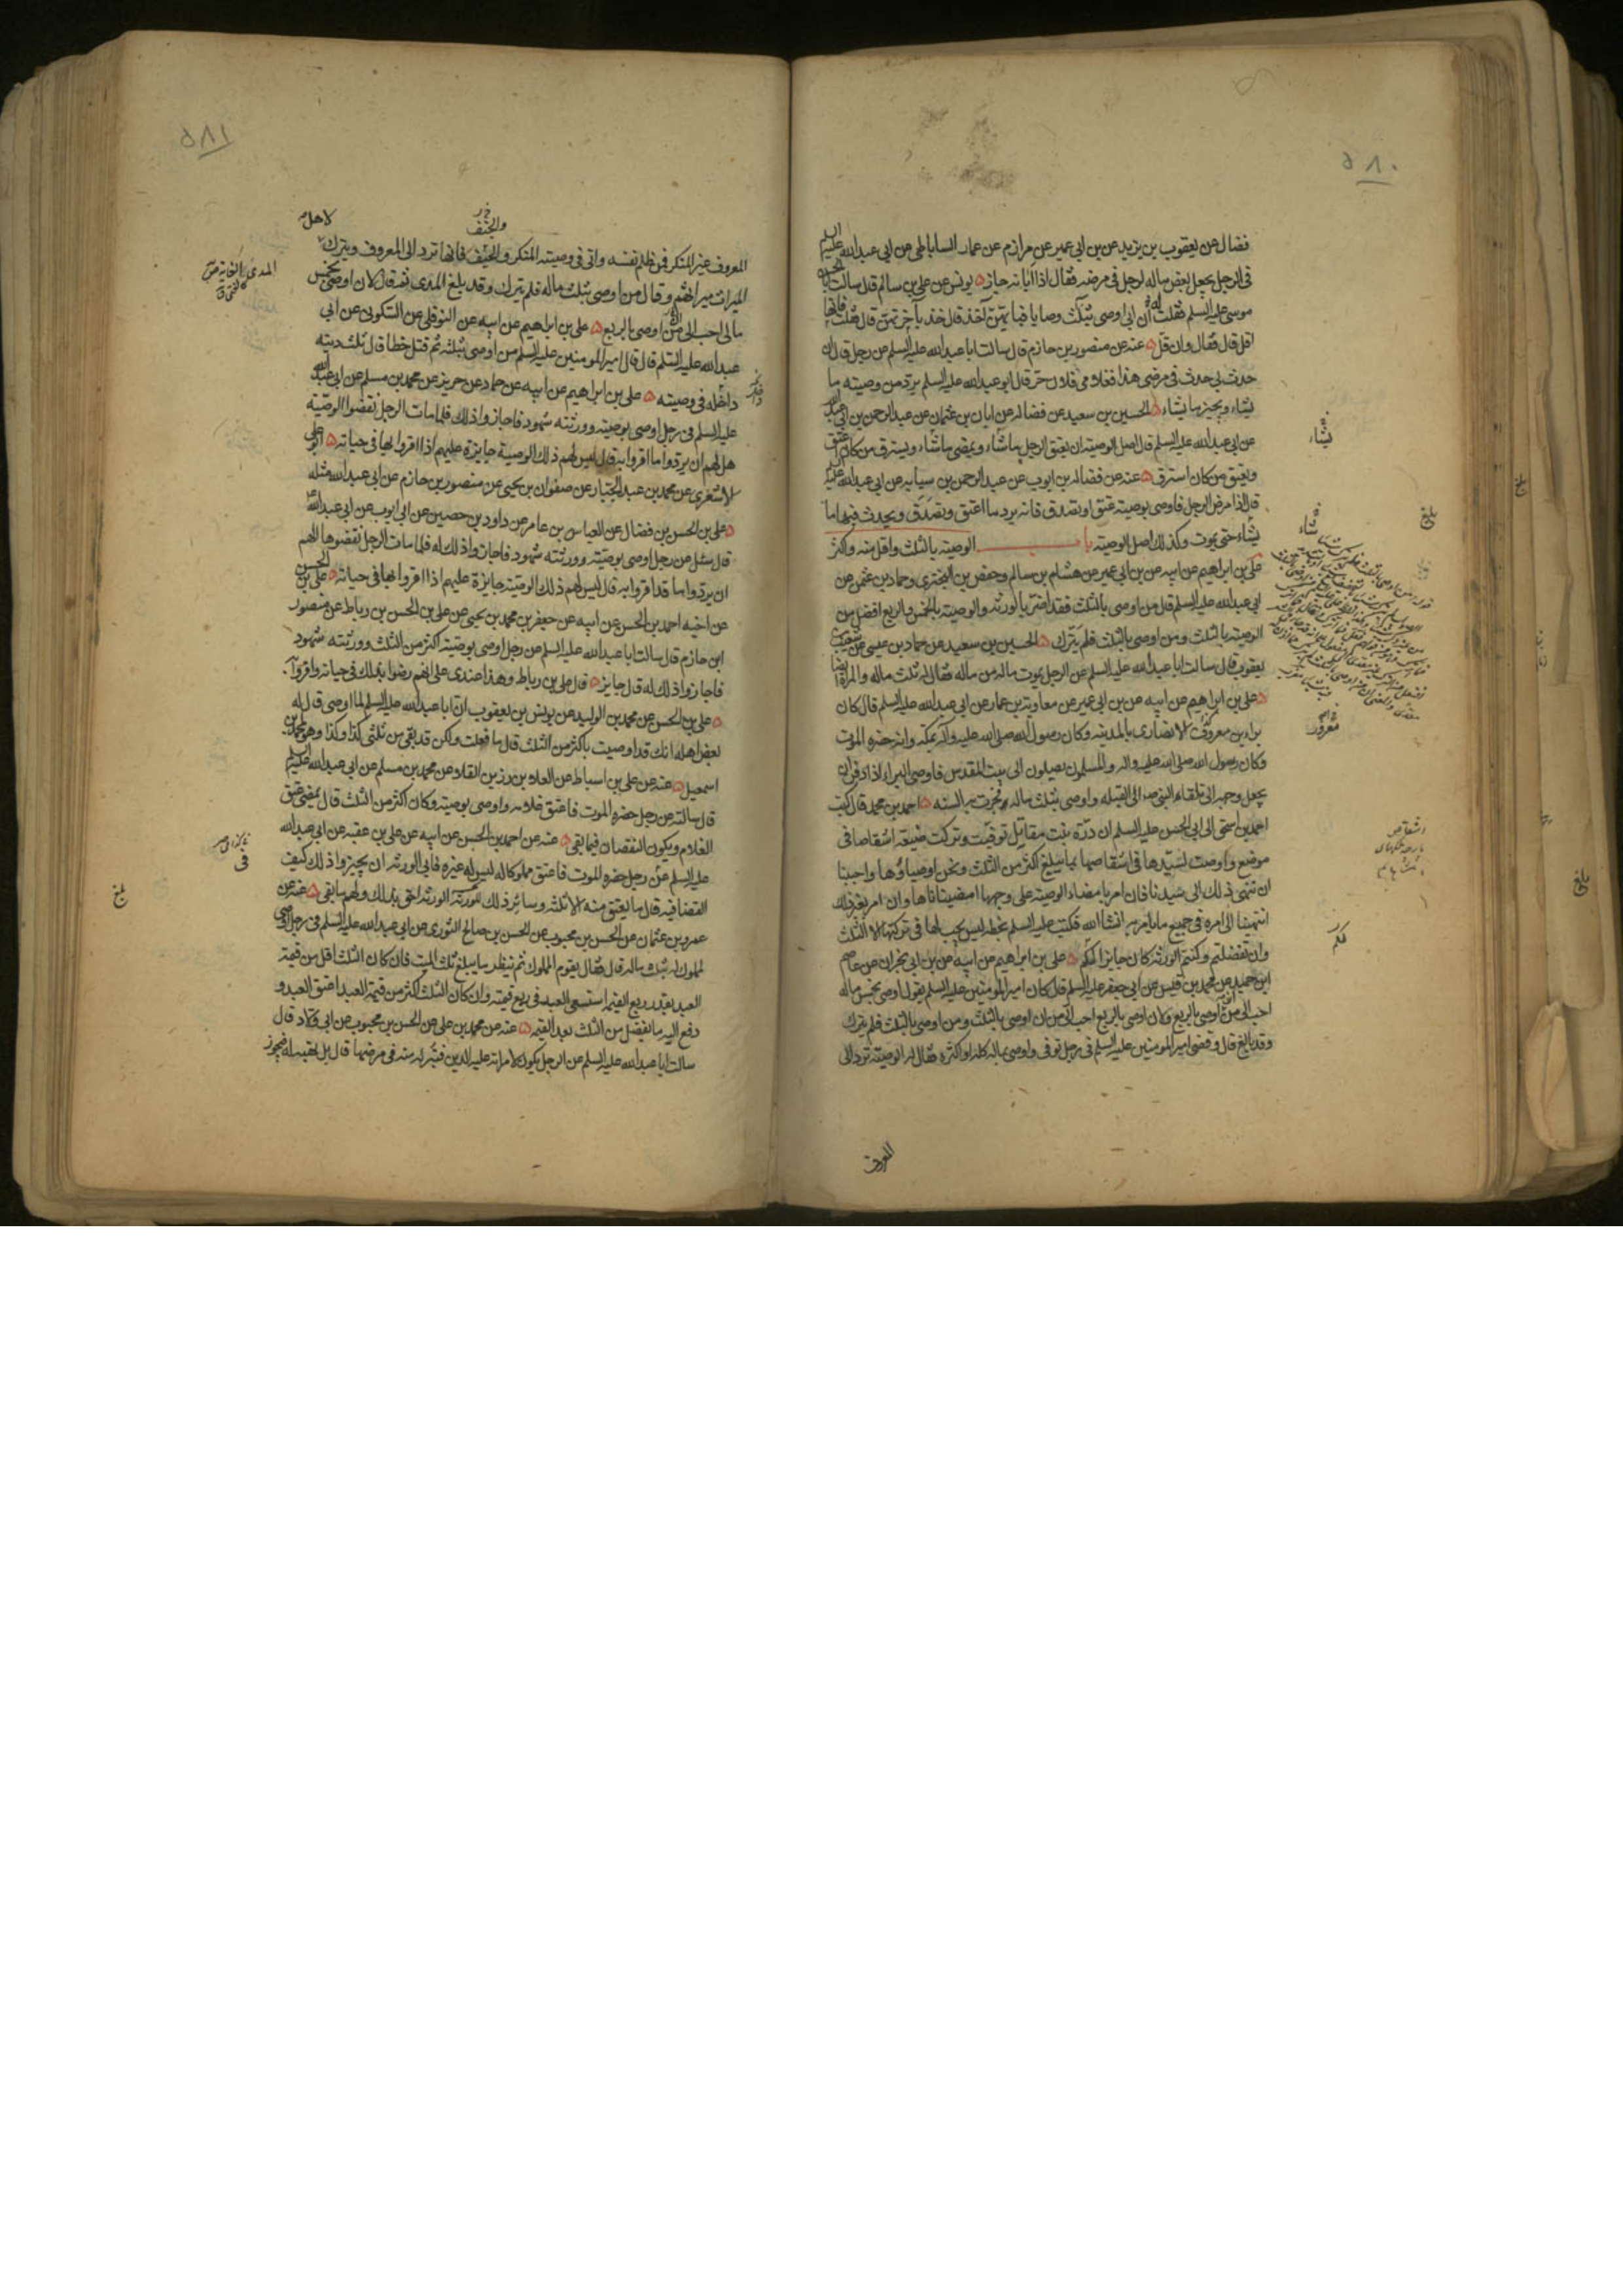 ۵۸۰
فضال عن يعقوب بن يزيد عن بن ابي عمير عن مرازم عن عمار الساباطي عن ابي عبدالله عليه السلم
في الرجل يجعل بعض ماله لرجل في مرضه فقال اذا ابانه جاز ٥ يونس عن علي بن سالم قال سالت ابا الحسن
موسى عليه السلم فقلت له ان ابي اوصى بثلث وصايا فبايهن آخذ قال خذ بآخرتهن قال قلت فانها
اقل قال فقال وان قل ٥ عنه عن منصور بن حازم قال سالت ابا عبدالله عليه السلم عن رجل قال ان
حدث بي حدث في مرضي هذا فغلامي فلان حر قال ابو عبدالله عليه السلم يرد من وصيته ما
يشاء ويجيز ما يشاء ٥ الحسين بن سعيد عن فضاله عن ابان بن عثمان عن عبدالرحمن بن ابي عبدالله
عن ابي عبدالله عليه السلم قال اصل الوصيته ان يعتق الرجل ما شاء ويمضي ما شاء ويسترق من كان اعتق
ويعتق من كان استرق ٥ عنه عن فضاله بن ايوب عن عبدالرحمن بن سيابه عن ابي عبدالله عليه السلم
قال اذا مرض الرجل فاوصى بوصيته عتق او تصدق فانه يرد ما اعتق وتصدق ويحدث فيها ما
يشاء حتى يموت وكذلك اصل الوصيته باب الوصيته بالثلث واقل منه واكثر
علي بن ابراهيم عن ابيه عن بن ابي عمير عن هشام بن سالم وحفص بن البختري وحماد بن عثمن عن
ابي عبدالله عليه السلم قال من اوصى بالثلث فقد اضر بالورثه والوصيته بالخمس والربع افضل من
الوصيته بالثلث ومن اوصى بالثلث فلم يترك ٥ الحسين بن سعيد عن حماد بن عيسى عن شعيب بن
يعقوب قال سالت ابا عبدالله عليه السلم عن الرجل يموت ماله من ماله فقال له ثلث ماله والمراة ايضا
٥ علي بن ابراهيم عن ابيه عن بن ابي عمير عن معاوية بن عمار عن ابي عبدالله عليه السلم قال كان
براء بن معرور الانصاري بالمدينه وكان رسول الله صلى الله عليه وآله بمكه وانه حضره الموت
وكان رسول الله صلى الله عليه واله والمسلمون يصلون الى بيت المقدس فاوصى البراء اذا دفن ان
يجعل وجهه الى تلقاء النبي ص الى القبله واوصى بثلث ماله فجرت به السنه ٥ احمد بن محمد قال كتب
احمد بن اسحق الى ابي الحسن عليه السلم ان درة بنت مقاتل توفيت وتركت ضيعة اشقاصا في
موضع واوصت لسيدها في اشقاصها بما يبلغ اكثر من الثلث ونحن اوصياؤها واحببنا
ان ننهي ذلك الى سيدنا فان امر بامضاء الوصيته على وجهها امضيناها وان امر بغير ذلك
انتهينا الى امره في جميع ما يامر به انشاالله فكتب عليه السلم بخطه ليس يجب لها في تركتها الا الثلث
وان تفضلتم وكنتم الورثه كان جايزا لكم ٥ علي بن ابراهيم عن ابيه عن بن ابي نجران عن عاصم
ابن حميد عن محمد بن قيس عن ابي جعفر عليه السلم قال كان امير المومنين عليه السلم يقول اوصى بخمس ماله
احب الي من ان اوصى بالربع ولان اوصى بالربع احب الي من ان اوصى بالثلث ومن اوصى بالثلث فلم يترك
وقد بالغ قال وقضى امير المومنين عليه السلم في رجل توفي واوصى بماله كله او اكثره فقال له الوصيته ترد الى
يشاء
شاء
معرور
لكم
بلغ
بلغ
المعروف
۵۸۱
والجنف
لاهل
المعروف غير المنكر فمن ظلم نفسه واتى في وصيته المنكر والحيف فانها ترد الى المعروف ويترك
الميراث ميراثهم وقال من اوصى بثلث ماله فلم يترك وقد بلغ المدى ثم قال لان اوصى بخمس
مالي احب الي من ان اوصى بالربع ٥ علي بن ابراهيم عن ابيه عن النوفلي عن السكوني عن ابي
عبدالله عليه السلم قال قال امير المومنين عليه السلم من اوصى بثلثه ثم قتل خطا قال ثلث ديته
داخله في وصيته ٥ علي بن ابراهيم عن ابيه عن حماد عن حريز عن محمد بن مسلم عن ابي عبدالله
عليه السلم في رجل اوصى بوصيته وورثته شهود فاجازوا ذلك فلما مات الرجل نقضوا الوصية
هل لهم ان يردوا ما اقروا به قال ليس لهم ذلك الوصية جايزة عليهم اذا اقروا بها في حياته ٥ ابو علي
الاشعري عن محمد بن عبد الجبار عن صفوان بن يحيى عن منصور بن حازم عن ابي عبدالله مثله
٥ علي بن الحسن بن فضال عن العباس بن عامر عن داود بن حصين عن ابي ايوب عن ابي عبدالله
قال سئل عن رجل اوصى بوصيته وورثته شهود فاجازوا ذلك له فلما مات الرجل نقضوها الهم
ان يردوا ما قد اقروا به قال ليس لهم ذلك الوصيته جايزة عليهم اذا اقروا بها في حياته ٥ علي بن الحسن
عن اخيه احمد بن الحسن عن ابيه عن جعفر بن محمد بن يحيى عن علي بن الحسن بن رباط عن منصور
ابن حازم قال سالت ابا عبدالله عليه السلم عن رجل اوصى بوصيته اكثر من الثلث وورثته شهود
فاجازوا ذلك له قال جايز ٥ قال علي بن رباط وهذا عندي على انهم رضوا بذلك في حياته واقروا به
٥ علي بن الحسن عن محمد بن الوليد عن يونس بن يعقوب ان ابا عبدالله عليه السلم لما اوصى قال له
بعض اهله انك قد اوصيت باكثر من الثلث قال ما فعلت ولكن قد بقي من ثلثي كذا وكذا وهو لمحمد بن
اسمعيل ٥ عنه عن علي بن اسباط عن العلاء بن رزين القلاء عن محمد بن مسلم عن ابي عبدالله عليه السلم
قال سالته عن رجل حضره الموت فاعتق غلامه واوصى بوصيته وكان اكثر من الثلث قال يمضي عتق
الغلام ويكون النقصان فيما بقي ٥ عنه عن احمد بن الحسن عن ابيه عن علي بن عقبه عن ابي عبدالله
عليه السلم عن رجل حضره الموت فاعتق مملوكا له ليس له غيره فابى الورثه ان يجيزوا ذلك كيف
القضا فيه قال ما يعتق منه الا ثلثه وسائر ذلك للورثة الورثه احق بذلك ولهم ما بقي ٥ عنه عن
عمرو بن عثمان عن الحسن بن محبوب عن الحسن بن صالح الثوري عن ابي عبدالله عليه السلم في رجل اوصى
لمملوك له بثلث ماله قال فقال يقوم المملوك ثم ينظر ما يبلغ ثلث الميت فان كان الثلث اقل من قيمة
العبد بقدر ربع القيمه استسعي العبد في ربع قيمته وان كان الثلث اكثر من قيمة العبد اعتق العبد و
دفع اليه ما يفضل من الثلث بعد القيمه ٥ عنه عن محمد بن علي عن الحسن بن محبوب عن ابي ولاد قال
سالت ابا عبدالله عليه السلم عن الرجل يكون لامراته عليه الدين فتبرئه منه في مرضها قال بل تهبه له فيجوز
بلغ